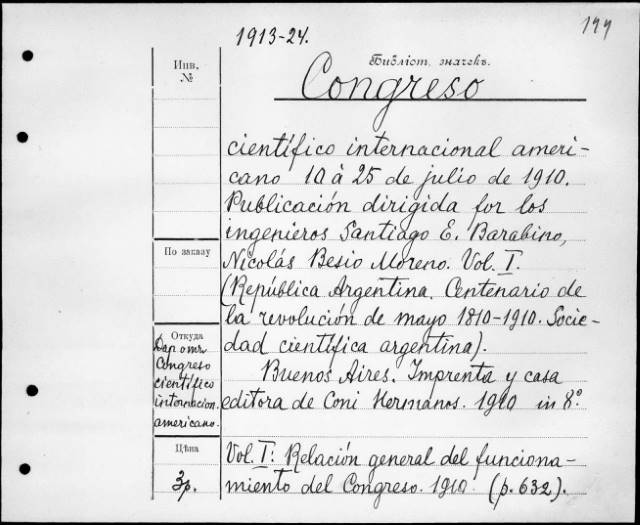 1913-24.
199
Инв.
№
Библіот. значекъ.
Congreso
científico internacional ameri-
cano 10 á 25 de julio de 1910.
Publicación dirigida for los
ingenieros Santiago E. Barabino,
По заказу
Nicolás Besio Moreno. Vol. I.
(República Argentina. Centenario de
la revolución de mayo 1810-1910. Socie-
Откуда
dad científica argentina).
Дар отъ
Congreso
científico
internacion.
americano.
Buenos Aires. Imprenta y casa
editora de Coni Hermanos. 1910 in 8º.
Цѣна
3р.
Vol. I: Relación general del funciona-
miento del Congreso. 1910. (p. 632).